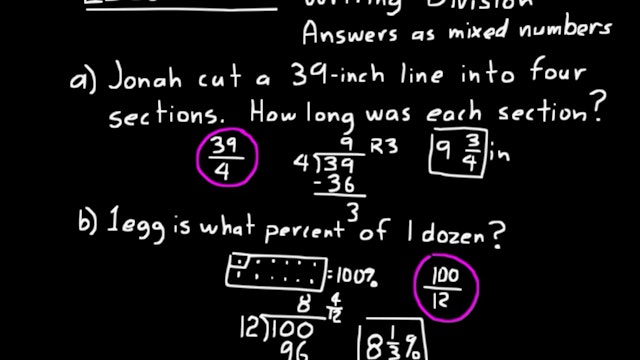 Writing Division
Answers as mixed numbers
a) Jonah cut a 39-inch line into four
sections. How long was each section?
39/4
9 R3
4)39
-36
3
9 3/4 in
b) 1 egg is what percent of 1 dozen?
= 100%
100/12
8 4/12
12)100
96
8 1/3 %